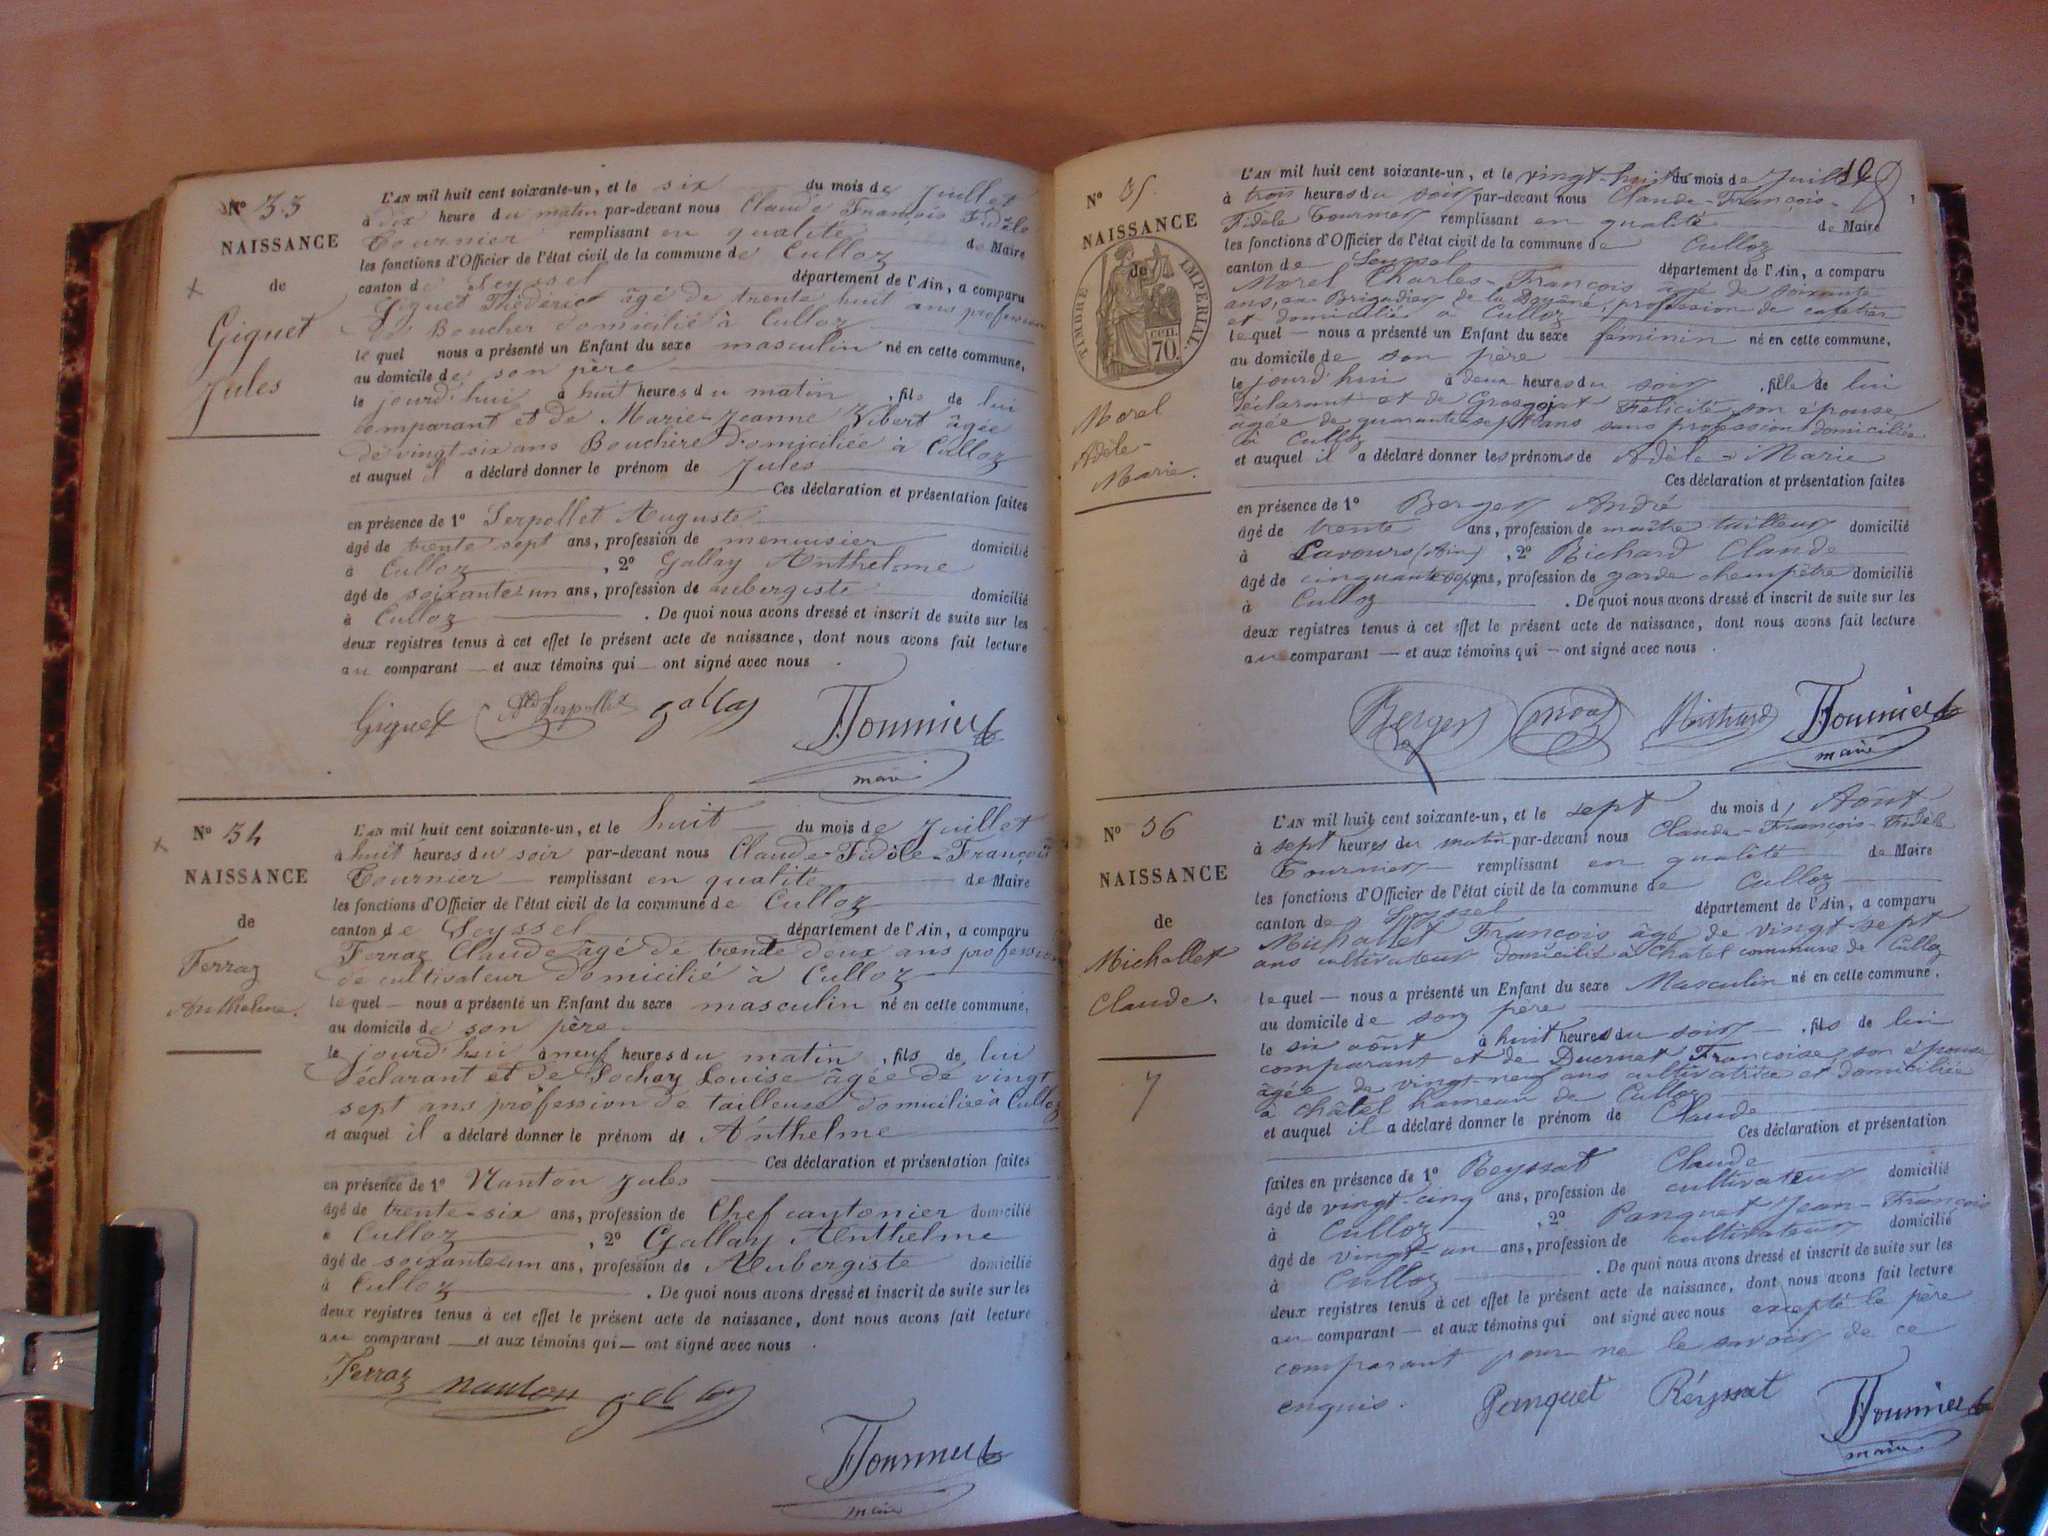 N° 33
NAISSANCE
de
Giguet
Jules
L'AN mil huit cent soixante-un, et le six du mois de Juillet
à dix heure du matin par-devant nous Claude François Fidèle
Tournier remplissant en qualité de Maire
les fonctions d'Officier de l'état civil de la commune de Culloz
canton de Seyssel département de l'Ain, a comparu
Giguet âgé de trente huit ans profession
de Boucher domicilié à Culloz
lequel nous a présenté un Enfant du sexe masculin né en cette commune,
au domicile de son père
le jourd'hui à huit heures du matin, fils de lui
comparant et de Marie-Jeanne Vibert âgée
de vingt-six ans Bouchère domiciliée à Culloz
et auquel il a déclaré donner le prénom de Jules
Ces déclaration et présentation faites
en présence de 1° Serpollet Auguste
âgé de trente sept ans, profession de menuisier domicilié
à Culloz, 2° Gallay Anthelme
âgé de soixante-un ans, profession de aubergiste domicilié
à Culloz. De quoi nous avons dressé et inscrit de suite sur les
deux registres tenus à cet effet le présent acte de naissance, dont nous avons fait lecture
au comparant et aux témoins qui ont signé avec nous.
Giguet Serpollet gallay Tournier
maire
N° 34
NAISSANCE
de
Ferraz
Anthelme.
L'AN mil huit cent soixante-un, et le huit du mois de Juillet
à huit heures du soir par-devant nous Claude-Fidèle-François
Tournier remplissant en qualité de Maire
les fonctions d'Officier de l'état civil de la commune de Culloz
canton de Seyssel département de l'Ain, a comparu
Ferraz Claude âgé de trente deux ans profession
de cultivateur domicilié à Culloz
lequel nous a présenté un Enfant du sexe masculin né en cette commune,
au domicile de son père
le jourd'hui à neuf heures du matin, fils de lui
déclarant et de Louise âgée de vingt
sept ans profession de tailleuse domiciliée à Culloz
et auquel il a déclaré donner le prénom de Anthelme
Ces déclaration et présentation faites
en présence de 1° Nanton Jules
âgé de trente-six ans, profession de Chef cantonier domicilié
à Culloz, 2° Gallay Anthelme
âgé de soixante un ans, profession de Aubergiste domicilié
à Culloz. De quoi nous avons dressé et inscrit de suite sur les
deux registres tenus à cet effet le présent acte de naissance, dont nous avons fait lecture
au comparant et aux témoins qui ont signé avec nous.
Ferraz nanton gallay
Tournier
maire
N° 35
NAISSANCE
de
TIMBRE IMPÉRIAL
70 CEN.
Morel
Adèle-
Marie.
L'AN mil huit cent soixante-un, et le vingt-huit du mois de Juillet
à trois heures du soir par-devant nous Claude-François-
Fidèle Tournier remplissant en qualité de Maire
les fonctions d'Officier de l'état civil de la commune de Culloz
canton de Seyssel département de l'Ain, a comparu
Morel Charles-François âgé de soixante
ans, ex-Brigadier de la Douane, profession de cafetier
et domicilié à Culloz
lequel nous a présenté un Enfant du sexe féminin né en cette commune,
au domicile de son père
le jourd'hui à deux heures du soir, fille de lui
déclarant et de Grosgojat Félicité, son épouse
âgée de quarante-sept ans sans profession domiciliée
à Culloz
et auquel il a déclaré donner les prénoms de Adèle-Marie
Ces déclaration et présentation faites
en présence de 1° Berger André
âgé de trente ans, profession de maître tailleur domicilié
à Lavours (Ain), 2° Richard Claude
âgé de ans, profession de garde champêtre domicilié
à Culloz. De quoi nous avons dressé et inscrit de suite sur les
deux registres tenus à cet effet le présent acte de naissance, dont nous avons fait lecture
au comparant et aux témoins qui ont signé avec nous.
Berger Richard Tournier
maire
N° 36
NAISSANCE
de
Michallet
Claude.
7
L'AN mil huit cent soixante-un, et le sept du mois d'Août
à sept heures du matin par-devant nous Claude-François-Fidèle
Tournier remplissant en qualité de Maire
les fonctions d'Officier de l'état civil de la commune de Culloz
canton de Seyssel département de l'Ain, a comparu
Michallet François âgé de vingt-sept
ans cultivateur domicilié à Châtel commune de Culloz
lequel nous a présenté un Enfant du sexe Masculin né en cette commune,
au domicile de son père
le six août à huit heures du soir, fils de lui
comparant et de Ducrnet Françoise, son épouse
âgée de vingt-neuf ans cultivatrice et domiciliée
à Châtel hameau de Culloz
et auquel il a déclaré donner le prénom de Claude
Ces déclaration et présentation
faites en présence de 1° Reyssat Claude
âgé de vingt-cinq ans, profession de cultivateur domicilié
à Culloz, 2° Panquet Jean-François
âgé de vingt-un ans, profession de cultivateur domicilié
à Culloz. De quoi nous avons dressé et inscrit de suite sur les
deux registres tenus à cet effet le présent acte de naissance, dont nous avons fait lecture
au comparant et aux témoins qui ont signé avec nous excepté le père
comparant pour ne le savoir de ce
enquis.
Panquet Réyssat Tournier
maire